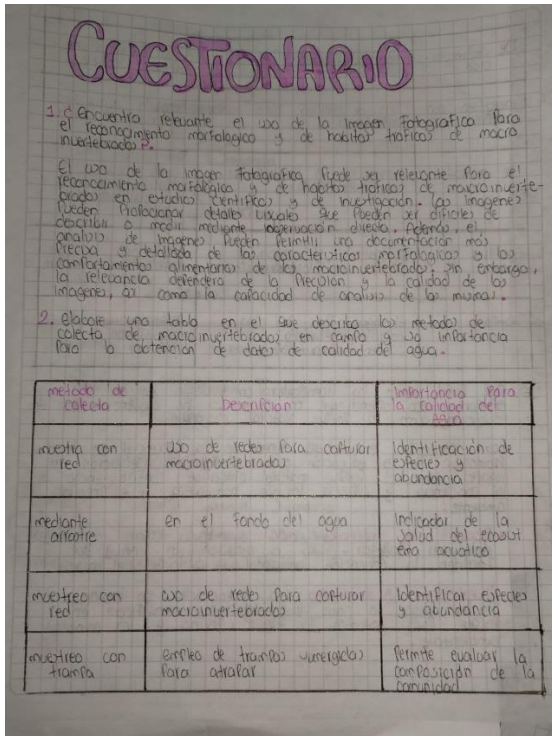 CUESTIONARIO
1. ¿ Encuentra relevante el uso de la imagen fotografica para
el reconocimiento morfologico y de habitos troficos de macro
invertebrados ?.
El uso de la imagen fotografica puede ser relevante para el
reconocimiento morfologico y de habitos troficos de macroinverte-
brados en estudios cientificos y de investigación. las imagenes
pueden proporcionar detalles visuales que pueden ser dificiles de
describir o medir mediante observación directa. Ademas, el
analisis de imagenes pueden permitir una documentación mas
precisa y detallada de las caracteristicas morfologicas y los
comportamientos alimentarios de los macroinvertebrados. sin embargo,
la relevancia dependera de la precision y la calidad de las
imagenes, asi como la capacidad de analisis de las mismas.
2. elabore una tabla en el que describa los metodos de
colecta de macroinvertebrados en campo y su importancia
para la obtención de datos de calidad del agua.
metodo de
colecta
Descripción
Importancia para
la calidad del
agua
muestra con
red
uso de redes para capturar
macroinvertebrados
Identificación de
especies y
abundancia
mediante
arrastre
en el fondo del agua
Indicador de la
salud del ecosist
ema acuatico
muestreo con
red
uso de redes para capturar
macroinvertebrados
Identificar especies
y abundancia
muestreo con
trampa
empleo de trampas sumergidas
para atrapar
Permite evaluar la
composición de la
comunidad